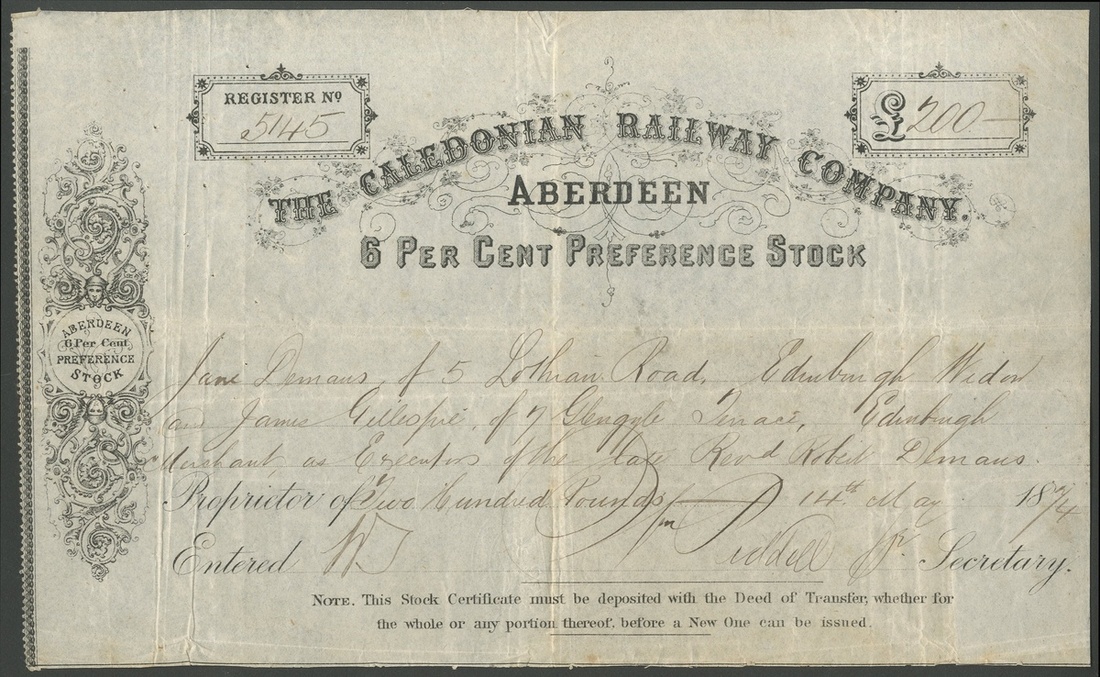 REGISTER Nº
5145
£200
THE CALEDONIAN RAILWAY COMPANY.
ABERDEEN
6 PER CENT PREFERENCE STOCK
ABERDEEN
6 Per Cent
PREFERENCE
STOCK
Jane Demaus, of 5 Lothian Road, Edinburgh Widow
and James Gillespie, of 7 Glengyle Terrace, Edinburgh
Merchant as Executors of the late Revd Robert Demaus.
Proprietor of Two Hundred Pounds 4th May 1874
Entered Secretary.
NOTE. This Stock Certificate must be deposited with the Deed of Transfer, whether for
the whole or any portion thereof, before a New One can be issued.